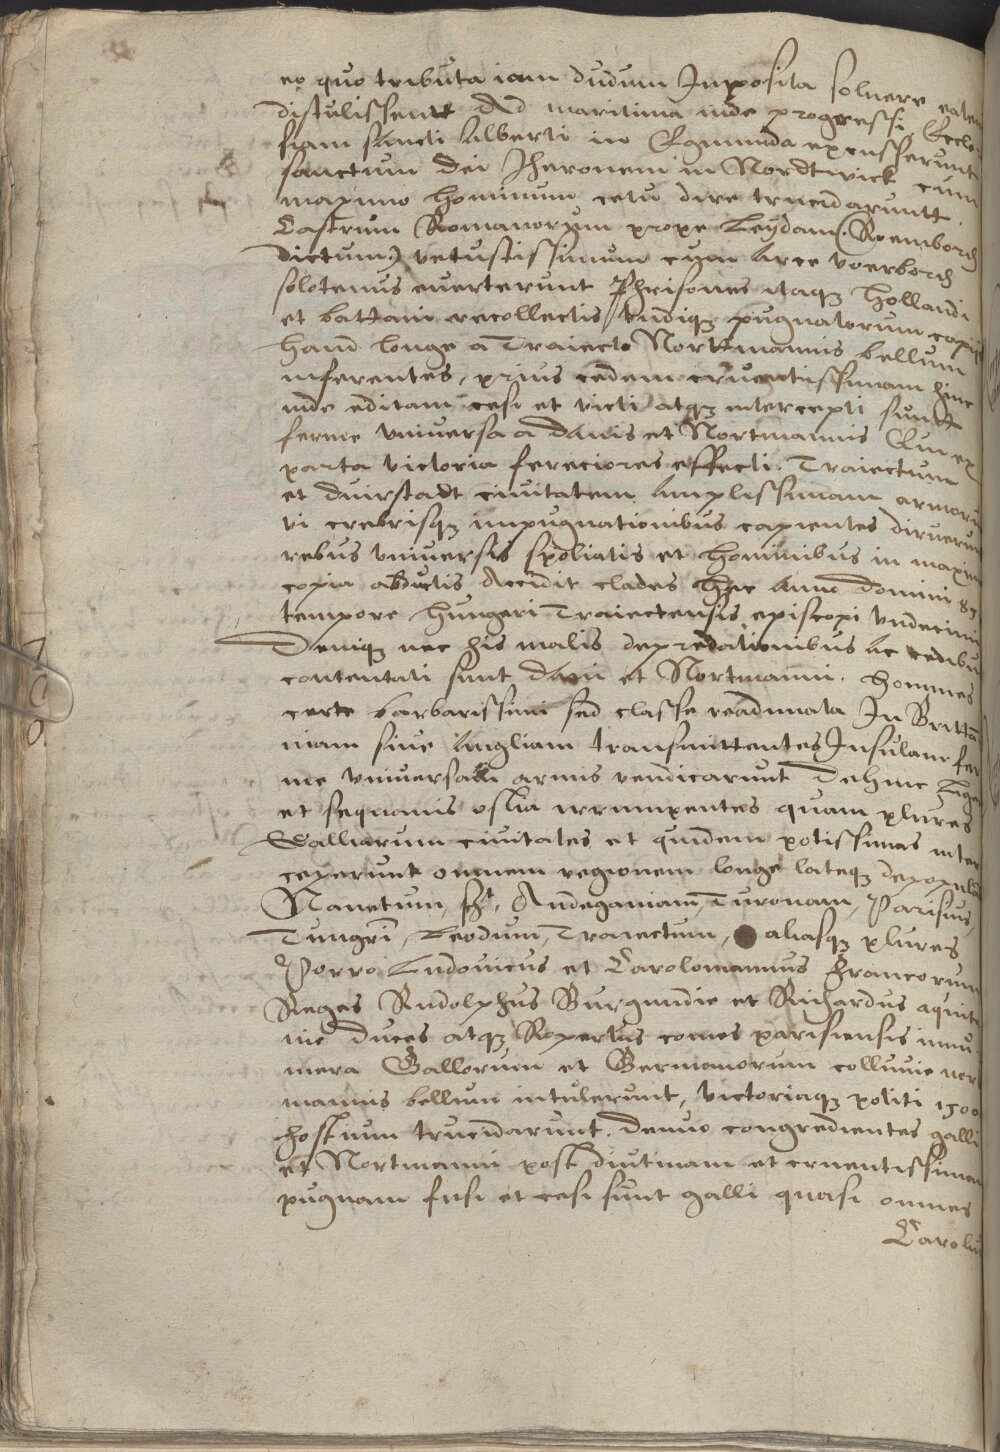 eo quo tributa iam dudum Imposita soluere eaten
distulissent Ad maritima inde progressi, Eccle
siam sancti Alberti in Egmunda excusserunt
sanctum dei Iheronem in Nordtwick cum
maximo hominum cetu dire trucidaruntt.
Castrum Romanorum prope Leydam (Roemborch
dictum) vetustissimum cum arce voerborch
solotenus euerterunt Phrisones itaqz Hollandi
et battaui recollectis vndiqz pugnatorum copijs
haud longe a Traiecto Nortmannis bellum
inferentes, prius cedem cruentissimam hinc
inde editam cesi et victi atqz intercepti suntt
ferme vniuersa a Danis et Nortmannis Qui ex
parta victoria fereciores effecti. Traiectum
et duirstadt ciuitatem amplissimam armoru
vi crebrisqz impugnationibus capientes diruerun
rebus vniuersis spoliatis et hominibus in maxim
copia abductis Accidit clades hec Anno Domini 83
tempore Hungeri Traiectensis episcopi vndecimi
Deniqz nec his malis depredationibus ac cedibu
contentati sunt dani et Nortmanni. homines
certe barbarissimi sed classe readunata In Brittā
niam siue Angliam transmittentes Insulam fer
me vniuersam armis vendicarunt Dehinc
et sequanis ostia irrumpentes quam plures
Galliarum ciuitates et quidem potissimas inter
ceperunt omnem regionem longe lateqz depopulā
Nanetum, sct, Andegauiam, Turonam, Parisius,
Tungri, Leodum, Traiectum, aliasqz plures
Porro Ludouicus et Carolomannus Francorum
Reges Rudolphus Burgundie et Richardus aquita
nie duces atqz Ropertus comes parisiensis innu
mera Gallorum et Germanorum colluuie nort
mannis bellum intulerunt, victoriaqz potiti 1500
hostium trucidarunt. Denuo congredientes galli
et Nortmanni post diutinam et cruentissimam
pugnam fusi et cesi sunt galli quasi omnes
Carolu